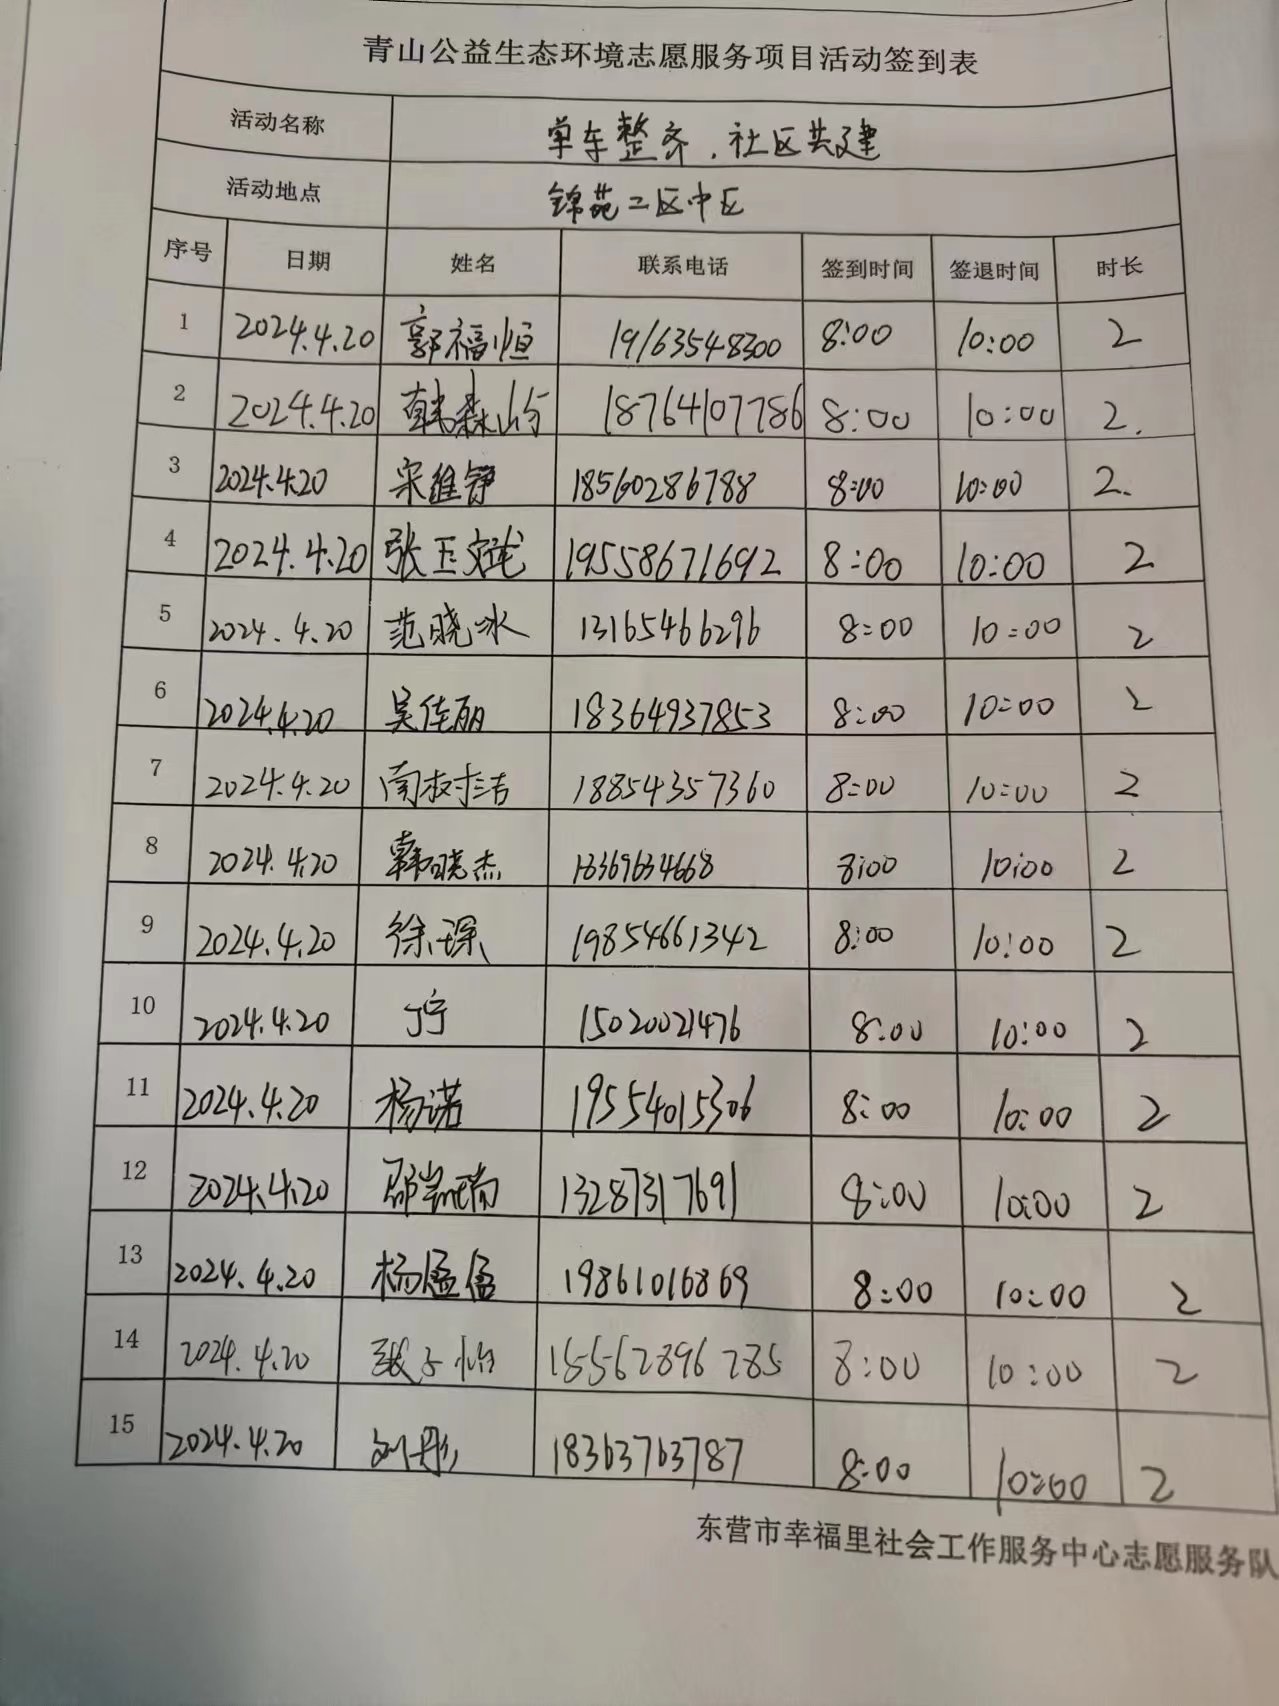 青山公益生态环境志愿服务项目活动签到表
活动名称 单车整齐.社区共建
活动地点 锦苑二区中区
序号 日期 姓名 联系电话 签到时间 签退时间 时长
1 2024.4.20 郭福恒 19163548300 8:00 10:00 2
2 2024.4.20 韩森屿 18764107786 8:00 10:00 2.
3 2024.4.20 宋维铮 18560286788 8:00 10:00 2.
4 2024.4.20 张玉 19558671692 8:00 10:00 2
5 2024.4.20 范晓冰 13165466296 8:00 10:00 2
6 2024.4.20 吴佳丽 18364937853 8:00 10:00 2
7 2024.4.20 南树洁 18854357360 8:00 10:00 2
8 2024.4.20 韩晓杰 13369634668 8:00 10:00 2
9 2024.4.20 徐琛 19854661342 8:00 10:00 2
10 2024.4.20 丁宁 15020021476 8:00 10:00 2
11 2024.4.20 杨诺 19554015306 8:00 10:00 2
12 2024.4.20 邵凯南 13287317691 8:00 10:00 2
13 2024.4.20 杨孟 19861016869 8:00 10:00 2
14 2024.4.20 子怡 15562896285 8:00 10:00 2
15 2024.4.20 刘彤 18363763787 8:00 10:00 2
东营市幸福里社会工作服务中心志愿服务队